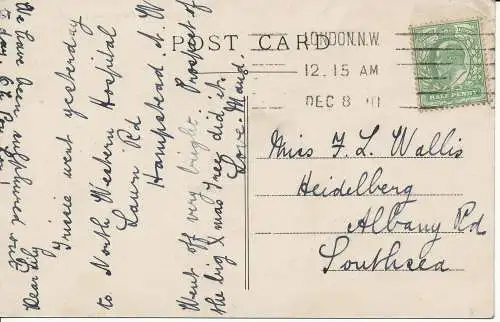 POST CARD
LONDON.N.W.
12.15 AM
DEC 8
Dear Lily
We have been
Trixie went yesterday
to North Western Hospital
Lawn Rd
Hampstead N.W
Went off very bright. Prospect of
the big Xmas Tree did it.
Love. Maud.
Miss F. L. Wallis
Heidelberg
Albany Rd
Southsea